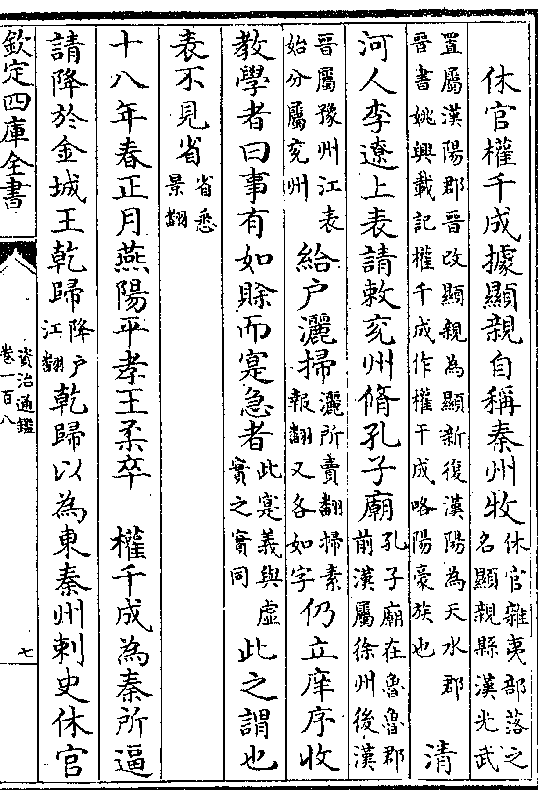 休官權千成據顯親自稱秦州牧休官雜夷部落之名顯親縣漢光武
置屬漢陽郡晉改顯親為顯新復漢陽為天水郡晉書姚興載記權千成作權干成略陽豪族也清
河人李遼上表請敕兗州脩孔子廟孔子廟在魯魯郡前漢屬徐州後漢
晉屬豫州江表始分屬兗州給户灑掃灑所賣翻掃素報翻又各如字仍立庠序收
教學者曰事有如賖而寔急者此寔義與虛實之實同此之謂也
表不見省省悉景翻
十八年春正月燕陽平孝王柔卒　權千成為秦所逼
請降於金城王乾歸降户江翻乾歸以為東秦州刺史休官
欽定四庫全書
資治通鑑
卷一百八
七